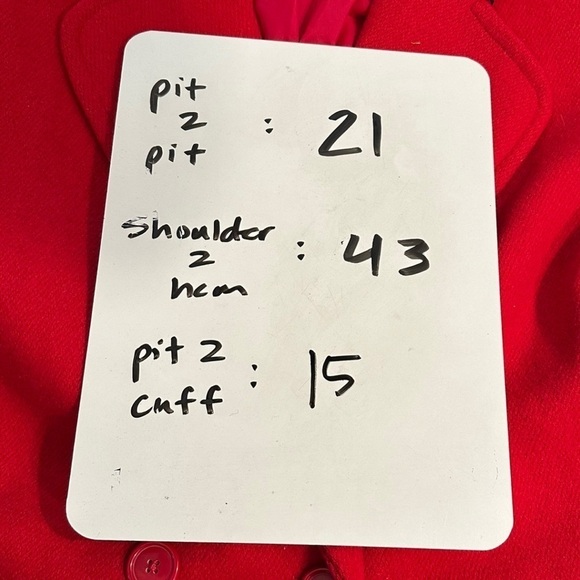 pit
2
pit : 21
shoulder
2
hem : 43
pit 2
cuff : 15